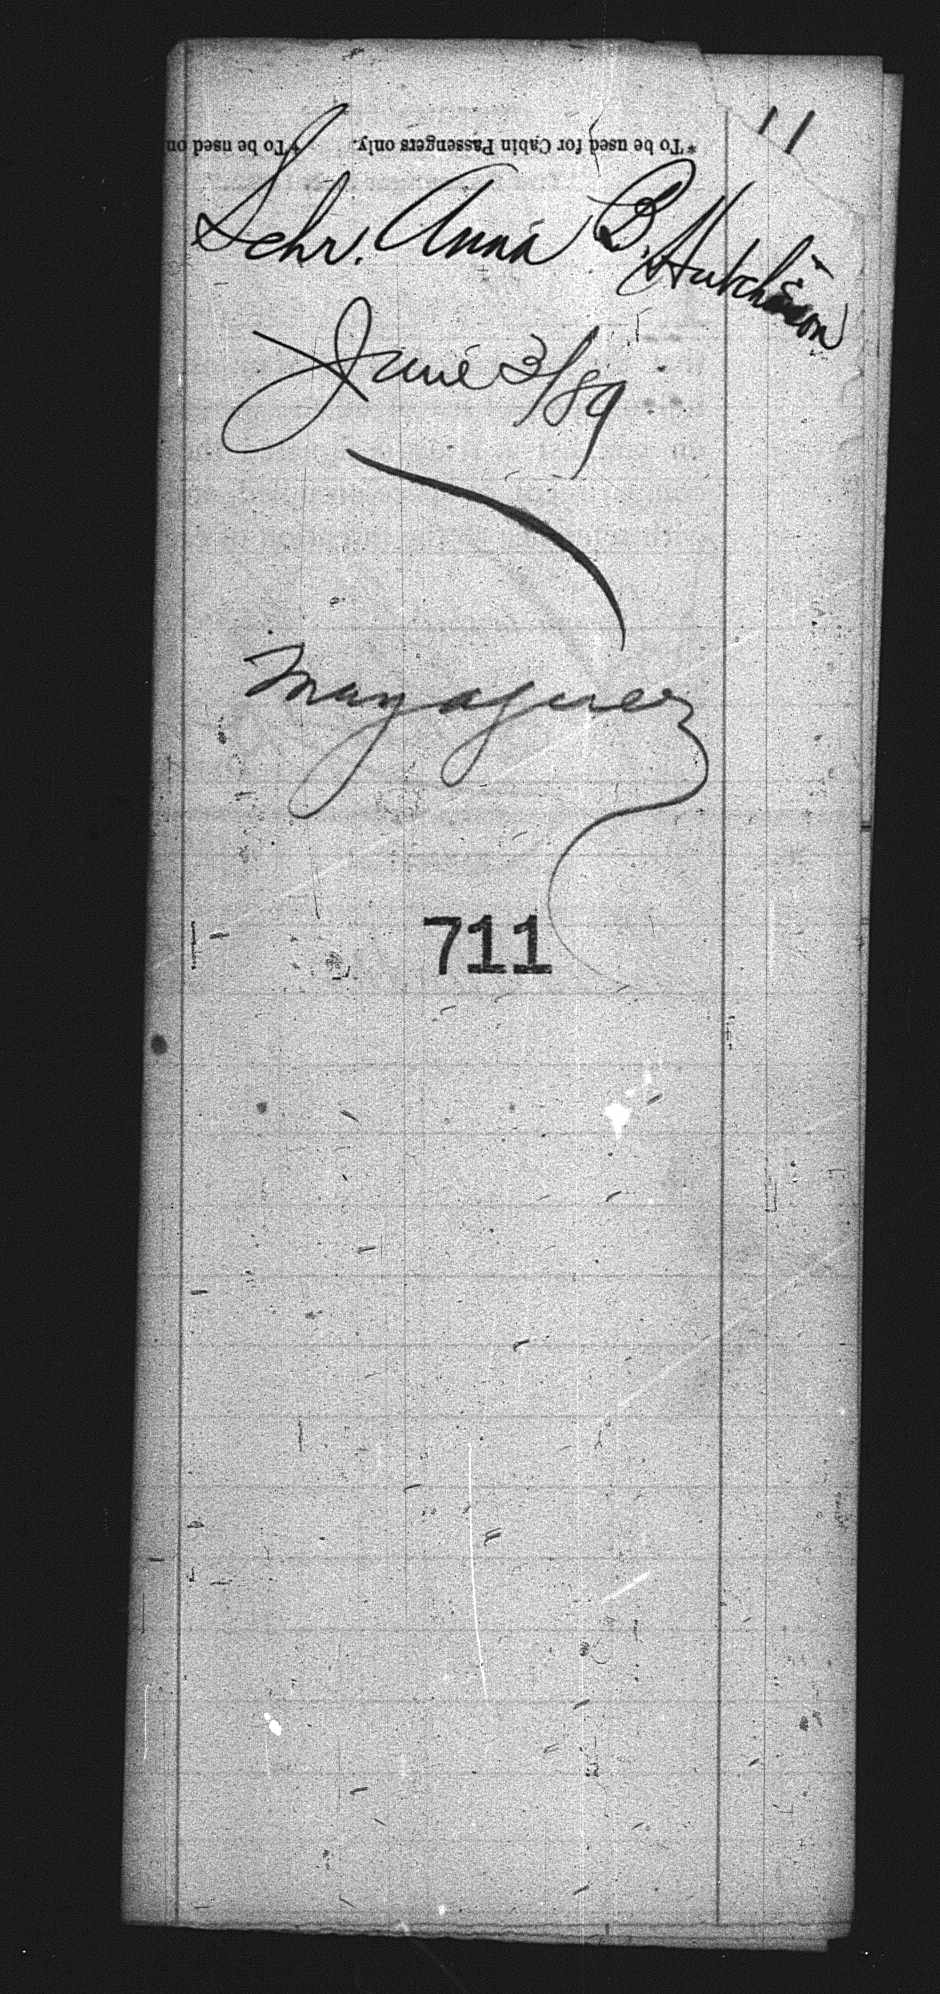 11
*To be used for Cabin Passengers only. *To be used on
Schr. Anna B. Hutchinson
June 3/89
Mayaguez
711